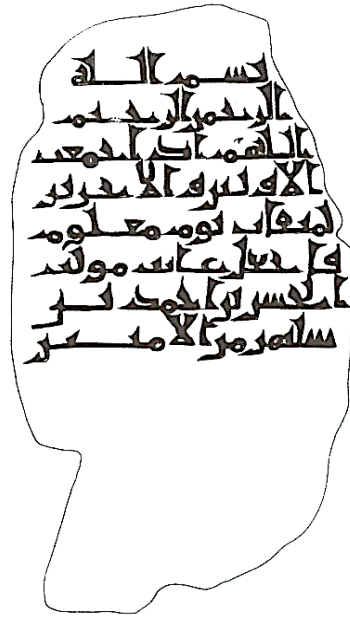 بسم الله
الرحمن الرحيم
اللهم اذا جمعت
الاولين والاخرين
لميقات يوم معلوم
فاجعل
الحسن بن احمد بن
سليمن من الامنين